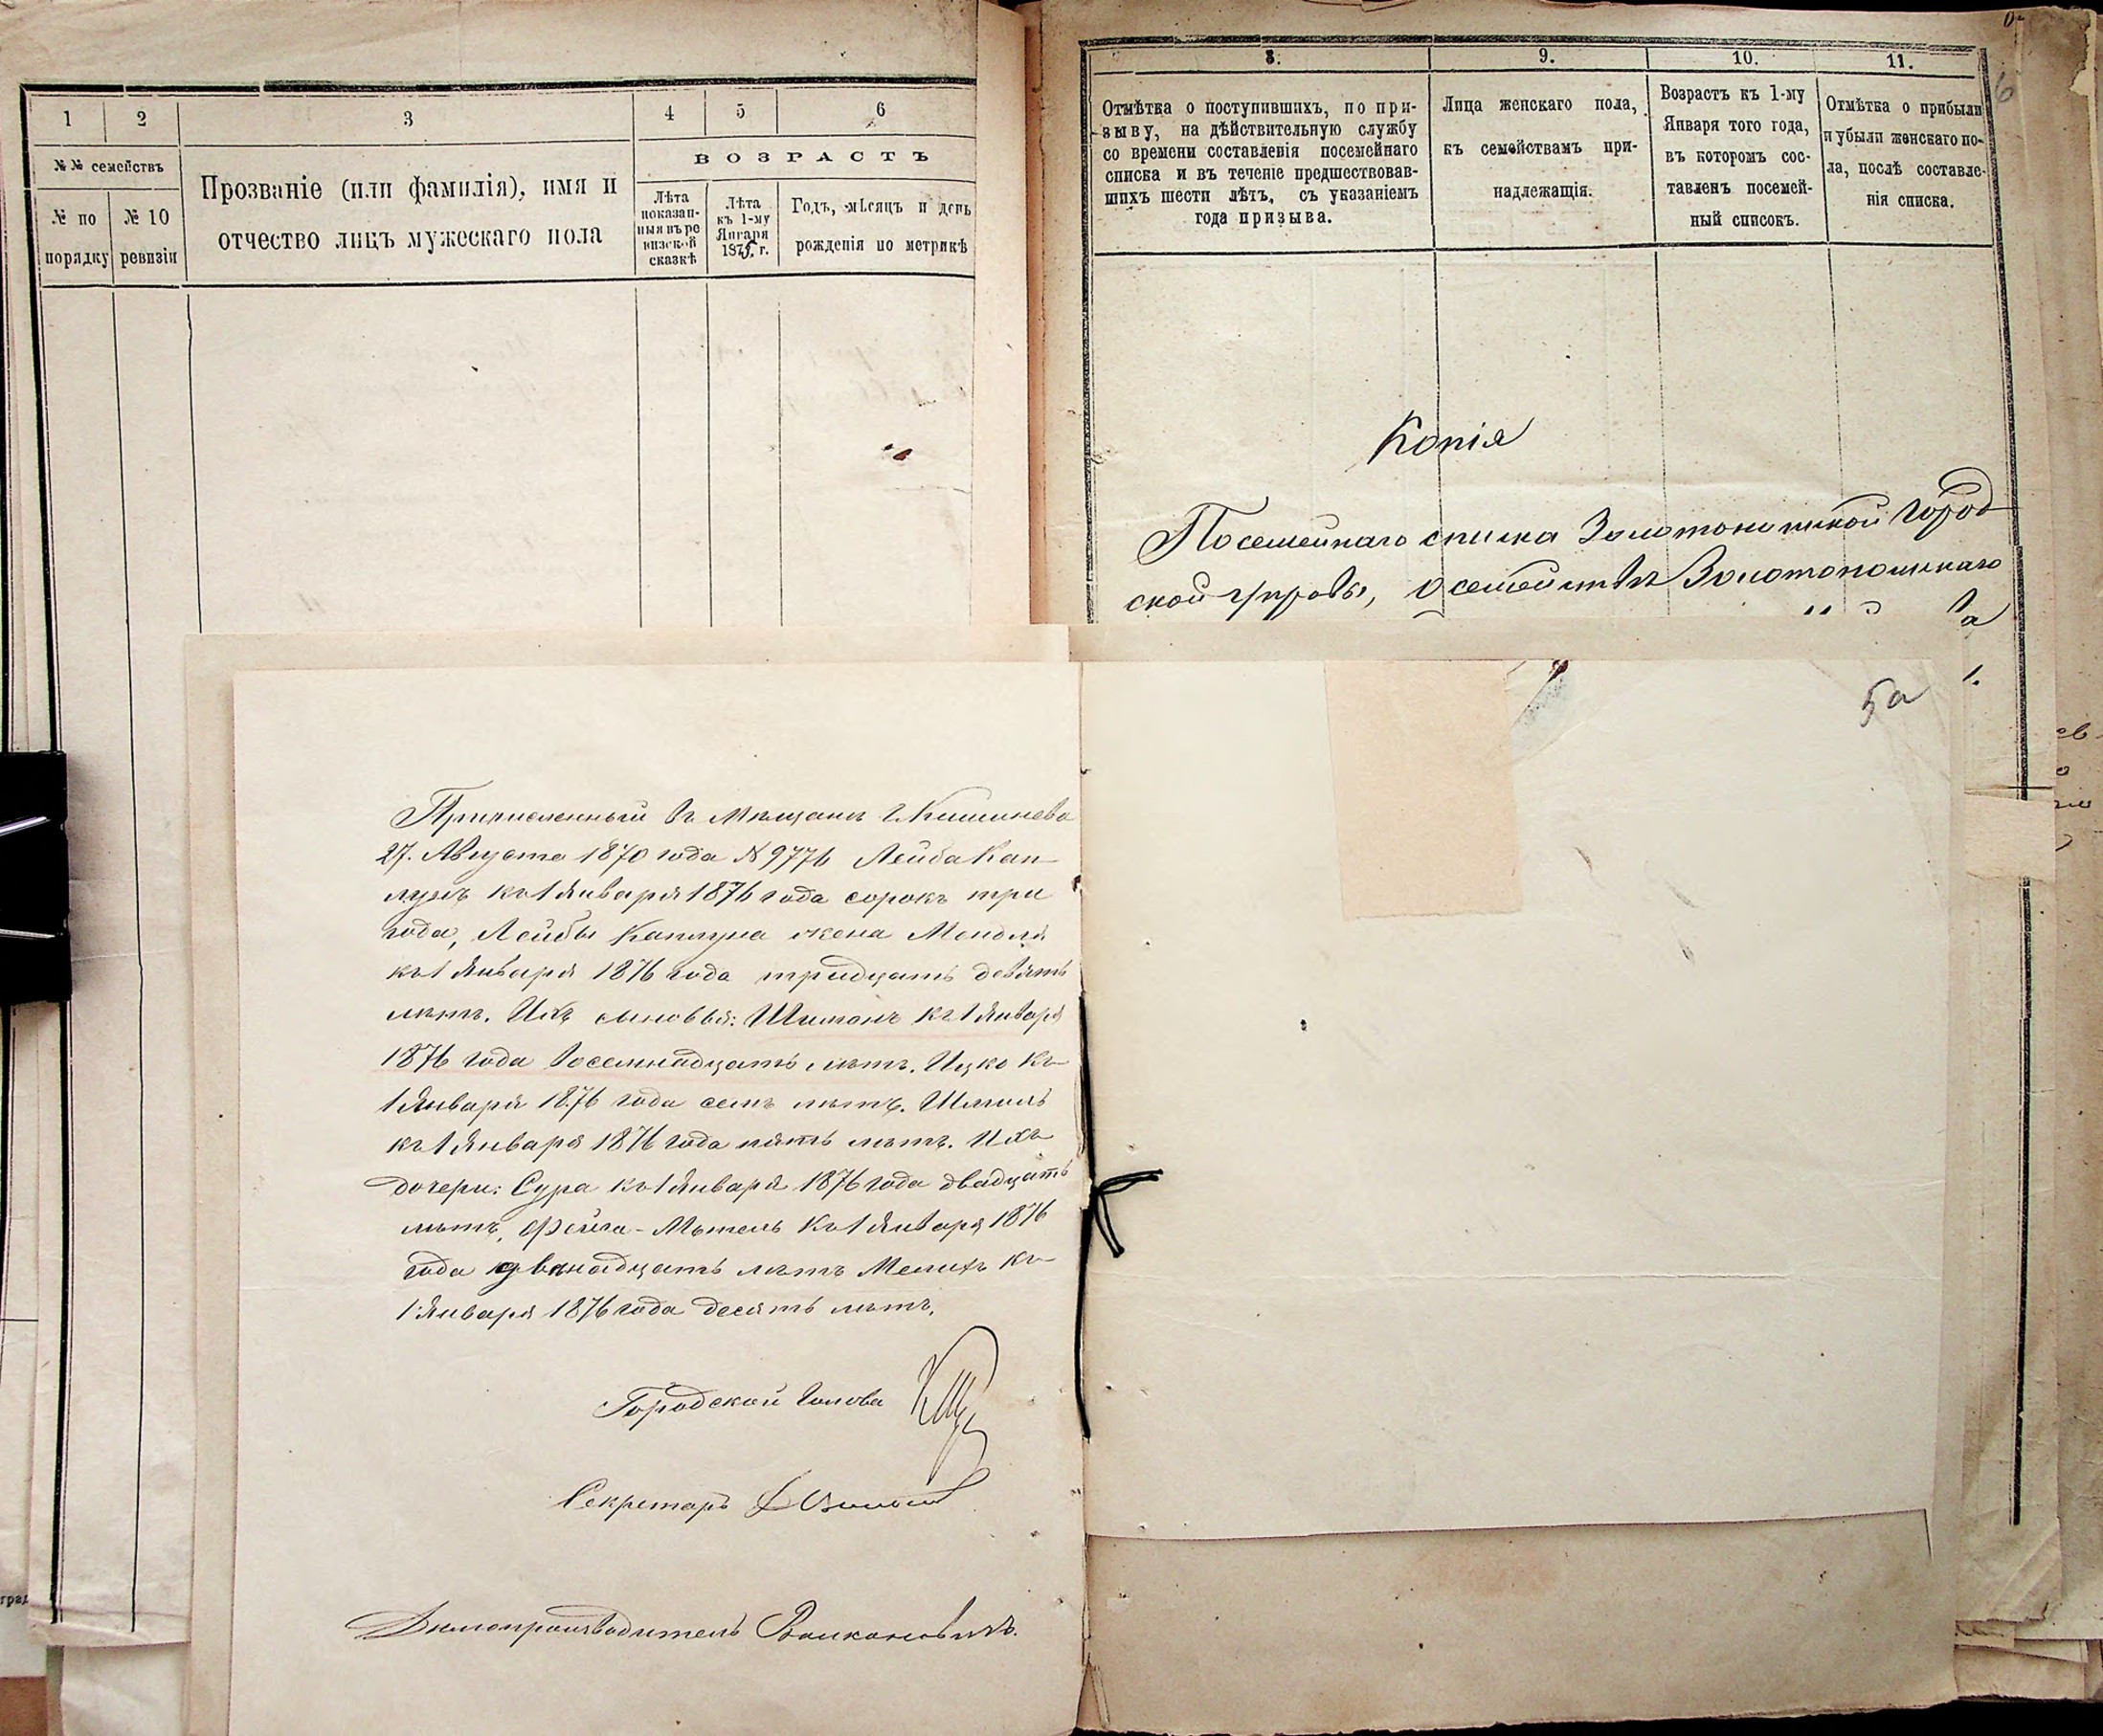 1
2
3
4
5
6
№№ семействъ
№ по порядку
№ 10 ревизіи
Прозваніе (или фамилія), имя и
отчество лицъ мужескаго пола
ВОЗРАСТЪ
Лѣта
показан-
ныя въ ре
визской
сказкѣ
Лѣта
къ 1-му
Января
1875 г.
Годъ, мѣсяцъ и день
рожденія по метрикѣ
8.
9.
10.
11.
Отмѣтка о поступившихъ, по при-
зыву, на дѣйствительную службу
со времени составленія посемейнаго
списка и въ теченіе предшествовав-
шихъ шести лѣтъ, съ указаніемъ
года призыва.
Лица женскаго пола,
къ семействамъ при-
надлежащія.
Возрастъ къ 1-му
Января того года,
въ котором сос-
тавленъ посемей-
ный списокъ.
Отмѣтка о прибыли
и убыли женскаго по-
ла, послѣ составле-
нія списка.
6
Копія
Посемейнаго списка Золотоношской Город
ской Управы, о семействѣ Золотоношскаго
5а
Приписанный въ мѣщане г. Кишинева
27. Августа 1870 года № 9776 Лейба Кап-
лунъ къ 1 Января 1876 года сорокъ три
года, Лейбы Каплуна жена Мендля
къ 1 Января 1876 года тридцать девять
лѣтъ. Ихъ сыновья: Шимонъ къ 1 Января
1876 года восемнадцать лѣтъ. Ицко къ
1 Января 1876 года семь лѣтъ. Шмиль
къ 1 Января 1876 года пять лѣтъ. Ихъ
дочери: Сура къ 1 Января 1876 года двадцать
лѣтъ, Фейга-Мотель къ 1 Января 1876
года двѣнадцать лѣтъ Мелихъ къ
1 Января 1876 года десять лѣтъ.
Городской Голова
Секретарь
Дѣлопроизводитель Волкановичъ.